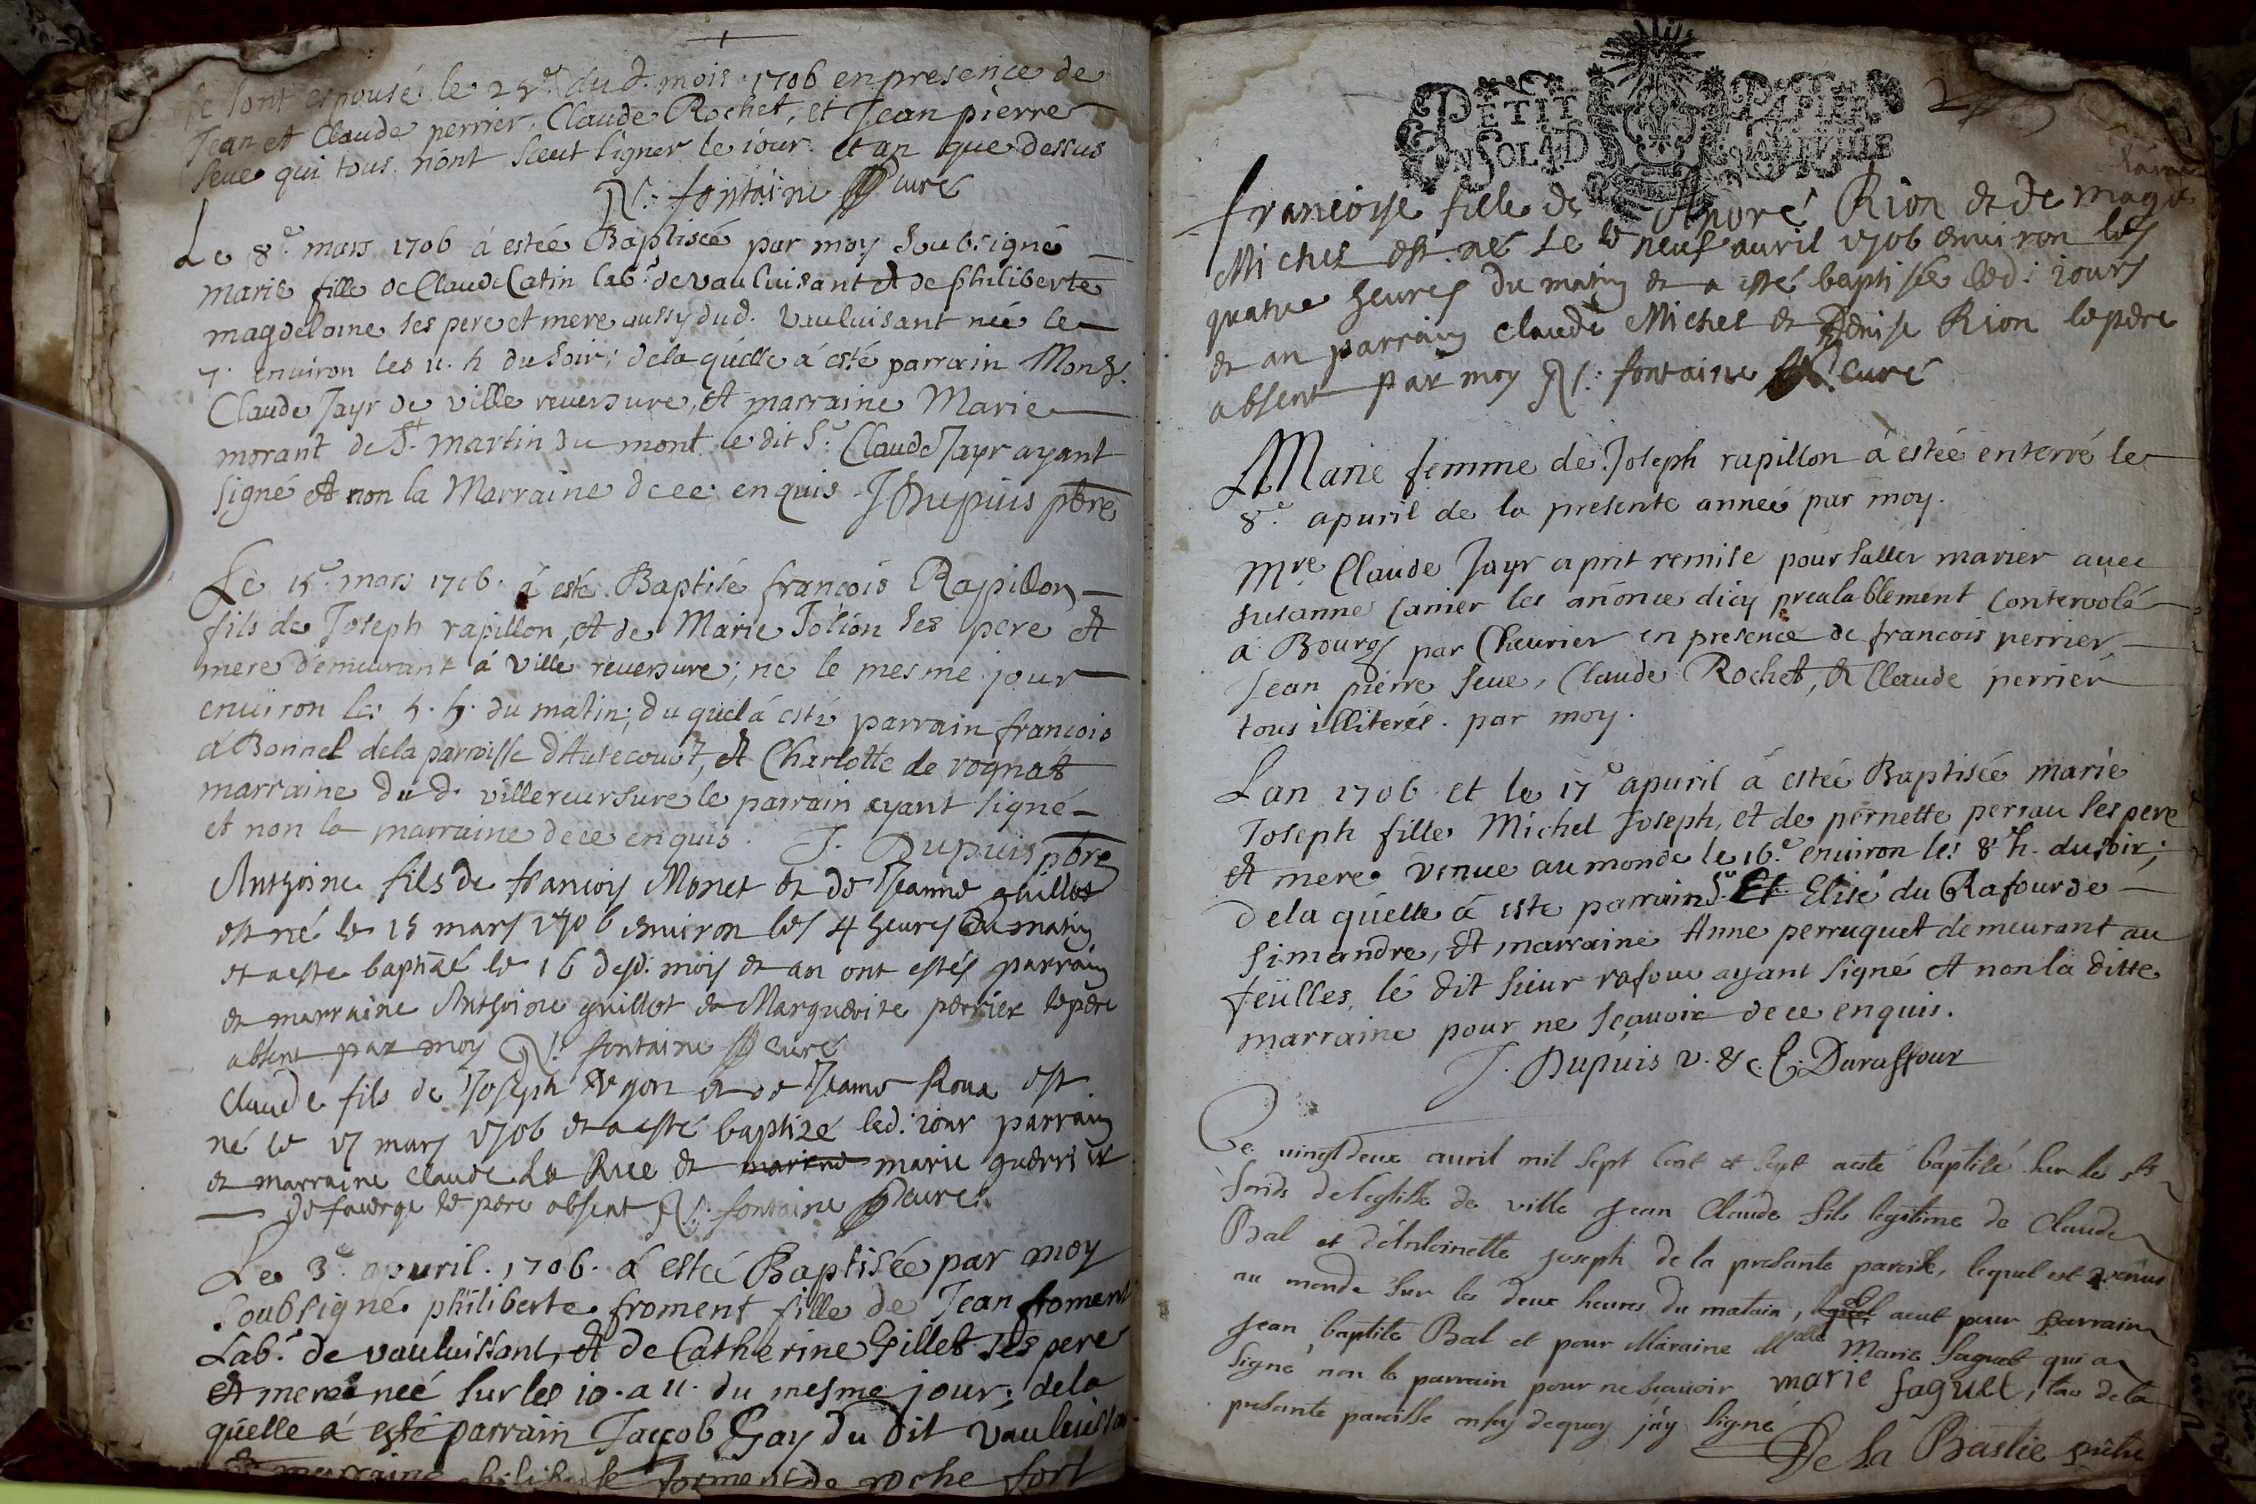 se sont espousé le du d. mois 1706 en presence de
Jean et Claude perrier, Claude Rochet, et Jean pierre
seue qui tous n'ont sceut signer le iour et an que dessus
fontaine curé
Le 8e. mars 1706 á estée Baptisée par moy soubsigné
marie fille de Claude Catin lab.r de vauluisant et de philiberte
magdelaine ses pere et mere aussy dud. vauluisant née le
7. environ les 11. h du soir; de la quelle á esté parrain Mons.r
Claude Jayr de ville reuersure, et marraine Marie
morant de St. martin du mont le dit Sr. Claude Jayr ayant
signé et non la Marraine de ce enquis J Dupuis pbre
Le 15e. mars 1706. á esté Baptisé françois Rapillon
fils de Joseph rapillon, et de Marie Jolion ses pere et
mere demeurant á ville reuersure; né le mesme jour
enuiron les h. du matin; du quel á esté parrain françois
de la parroisse et Charlotte de rognat
marraine du d. villereursure le parrain ayant signé
et non la marraine de ce enquis. J. Dupuis pbre
Anthoine fils de francois Monet et de Jeanne guillot
est né le 15 mars 1706 enuiron les 4 heures du matin
et a este baptizé le 16 desd. mois et an ont estés parrain
et marraine Anthoine guillot et Marguerite perrier le pere
absent par moy fontaine curé
Claude fils de Joseph et de Jeanne Roux est
né le 17 mars 1706 et a esté baptizé led. iour parrain
et marraine Claude La Rue et mariene marie
le pere absent fontaine curé
Le 3e. auril. 1706. á estée Baptisée par moy
soubsigné philiberte froment fille de Jean froment
Lab.r de vauluissant, et de Catherine Gillet ses pere
et mere née sur les 10. a 11. du mesme jour; de la
quelle á esté parrain Jacob Gay du dit
et marraine froment de roche fort
PETIT PAPIER
françoise fille de André Rion et de
Michel est né le le neuf auril 1706 enuiron les
quatre heures du matin et a esté baptisée led. iours
et an parrain claude Michel et Denise Rion le pere
absent par moy fontaine curé
Marie femme de Joseph rapillon á estée enterré le
8e. apuril de la presente année par moy.
Mre Claude Jayr a prit remise pour s'aller marier auec
susanne les anonce dicy prealablement
a Bourg par Cheurier en presence de francois perrier,
Jean pierre seue, Claude Rochet, et Claude perrier
tous illiterés. par moy.
Lan 1706 et le 17e apuril á estée Baptisée marie
Joseph fille Michel Joseph, et de pernette perrau ses pere
et mere venue au monde le 16.e enuiron les 8 h. du soir;
de la quelle á este parrain Sr. Et Elisé du Rafour de
simandre, et marraine Anne perruquet demeurant au
feüilles, lé dit sieur rafour ayant signé et non la ditte
marraine pour ne sçauoir de ce enquis.
J. Dupuis v. & c. E. Duraffour
Le vingt deux auril mil sept cent et sept a esté baptisé sur les sts
fonds de leglise de ville Jean Claude fils legitime de Claude
Bal et d'Antoinette joseph de la presante paroisse, lequel est venus
au monde sur les deux heures du matain, lequel aeut pour parrain
Jean baptiste Bal et pour Maraine Mlle Marie faguet qui a
signé non le parrain pour ne sçauoir marie faguet, tous de la
presante paroisse en foy dequoy j'ay signé
De La Bastie prêtre